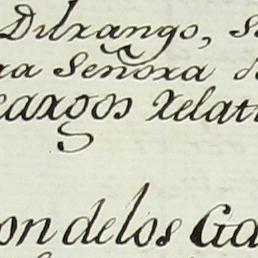 Durango, S
ra Señora d
cargos Relat
on de los Ga